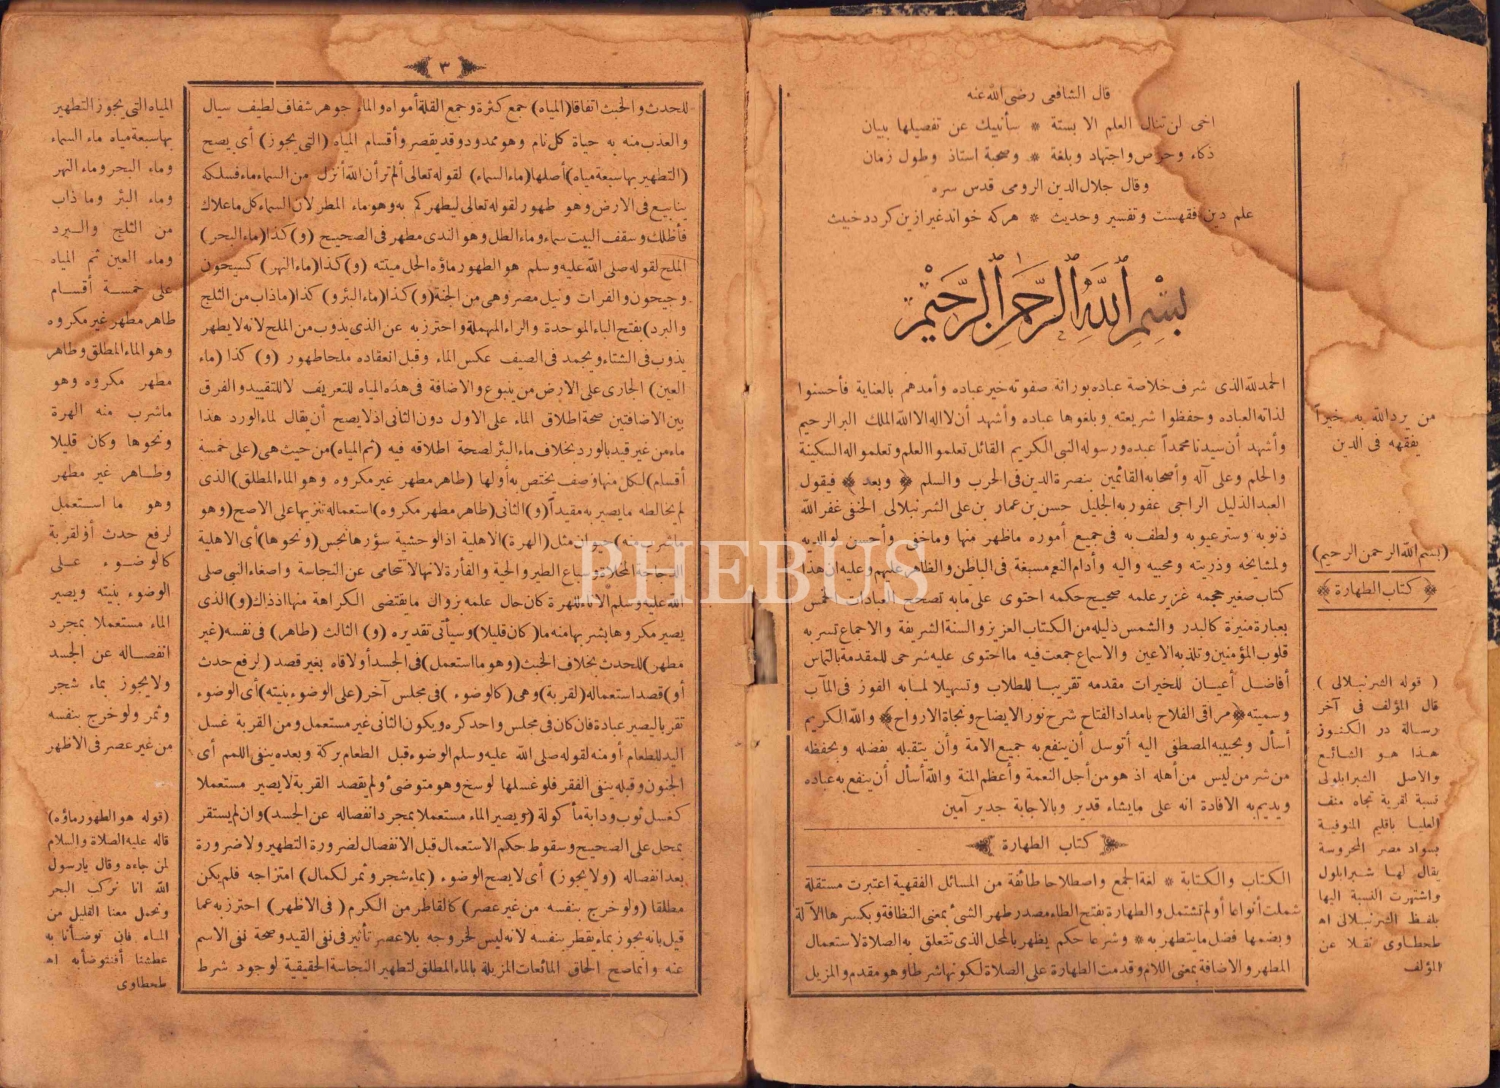 قال الشافعى رضى الله عنه
اخى لن تنال العلم الا بستة * سأنبيك عن تفصيلها ببيان
ذكاء وحرص واجتهاد وبلغة * وصحبة استاذ وطول زمان
وقال جلال الدين الرومى قدس سره
علم دين فقهست وتفسير وحديث * هركه خواند غير ازين كردد خبيث
بسم الله الرحمن الرحيم
الحمد لله الذى شرف خلاصة عباده بوراثة صفوته خير عباده وأمدهم بالعناية فأحسنوا
لذاته العباده وحفظوا شريعته وبلغوها عباده وأشهد أن لا اله الا الله الملك البر الرحيم
وأشهد أن سيدنا محمداً عبده ورسوله النبى الكريم القائل تعلموا العلم وتعلموا له السكينة
والحلم وعلى آله وأصحابه القائمين بنصرة الدين فى الحرب والسلم ﴿ وبعد ﴾ فيقول
العبد الذليل الراجى عفو ربه الجليل حسن بن عمار بن على الشرنبلالى الحنفى غفر الله
ذنوبه وستر عيوبه ولطف به فى جميع أموره ماظهر منها وماخفى وأحسن لوالديه
ولمشايخه وذريته ومحبيه واليه وأدام النعم مسبغة فى الباطن والظاهر عليهم وعليه ان هذا
كتاب صغير حجمه غزير علمه صحيح حكمه احتوى على مابه تصحيح العبادات الخمس
بعبارة منيرة كالبدر والشمس دليله من الكتاب العزيز والسنة الشريفة والاجماع تسر به
قلوب المؤمنين وتلذ به الاعين والاسماع جمعت فيه ما احتوى عليه شرحى للمقدمة بالتماس
أفاضل أعيان للخيرات مقدمه تقريبا للطلاب وتسهيلا لما به الفوز فى المآب
وسميته ﴿مراقى الفلاح بامداد الفتاح شرح نور الايضاح ونجاة الارواح﴾ والله الكريم
أسأل وبحبيبه المصطفى اليه أتوسل أن ينفع به جميع الامة وأن يتقبله بفضله ويحفظه
من شر من ليس من أهله اذ هو من أجل النعمة وأعظم المنة والله أسأل أن ينفع به عباده
ويديم به الافادة انه على مايشاء قدير وبالاجابة جدير آمين
كتاب الطهارة
الكتاب والكتابة * لغة الجمع واصطلاحا طائفة من المسائل الفقهية اعتبرت مستقلة
شملت أنواعا أو لم تشتمل والطهارة بفتح الطاء مصدر طهر الشئ بمعنى النظافة وبكسرها الآلة
وبضمها فضل مايتطهر به * وشرعا حكم يظهر بالمحل الذى تتعلق به الصلاة لاستعمال
المطهر والاضافة بمعنى اللام وقدمت الطهارة على الصلاة لكونها شرطا وهو مقدم والمزيل
من يرد الله به خيراً
يفقهه فى الدين
(بسم الله الرحمن الرحيم)
﴿ كتاب الطهارة ﴾
( قوله الشرنبلالى )
قال المؤلف فى آخر
رسالة در الكنوز
هذا هو الشائع
والاصل الشبرابلولى
نسبة لقرية تجاه منف
العليا باقليم المنوفية
بسواد مصر المحروسة
يقال لها شبرابلول
واشتهرت النسبة اليها
بلفظ الشرنبلالى اه
طحطاوى نقلا عن
المؤلف
٣
للحدث والخبث اتفاقا (المياه) جمع كثرة وجمع القلة أمواه والماء جوهر شفاف لطيف سيال
والعذب منه به حياة كل نام وهو ممدود وقد يقصر وأقسام المياه (التى يجوز) أى يصح
(التطهير بها سبعة مياه) أصلها (ماء السماء) لقوله تعالى ألم تر أن الله أنزل من السماء ماء فسلكه
ينابيع فى الارض وهو طهور لقوله تعالى ليطهركم به وهو ماء المطر لان السماء كل ماعلاك
فأظلك وسقف البيت سماء وماء الطل وهو الندى مطهر فى الصحيح (و) كذا (ماء البحر)
الملح لقوله صلى الله عليه وسلم هو الطهور ماؤه الحل ميتته (و) كذا (ماء النهر) كسيحون
وجيحون والفرات ونيل مصر وهى من الجنة (و) كذا (ماء البئر و) كذا (ماذاب من الثلج
والبرد) بفتح الباء الموحدة والراء المهملة واحترز به عن الذى يذوب من الملح لانه لا يطهر
يذوب فى الشتاء ويجمد فى الصيف عكس الماء وقبل انعقاده ملحا طهور (و) كذا (ماء
العين) الجارى على الارض من ينبوع والاضافة فى هذه المياه للتعريف لا للتقييد والفرق
بين الاضافتين صحة اطلاق الماء على الاول دون الثانى اذ لا يصح أن يقال لماء الورد هذا
ماء من غير قيد بالورد بخلاف ماء البئر لصحة اطلاقه فيه (ثم المياه) من حيث هى (على خمسة
أقسام) لكل منها وصف يختص به أولها (طاهر مطهر غير مكروه وهو الماء المطلق) الذى
لم يخالطه مايصير به مقيداً (و) الثانى (طاهر مطهر مكروه) استعماله تنزيها على الاصح (وهو
ماشرب منه) حيوان مثل (الهرة) الاهلية اذ الوحشية سؤرها نجس (ونحوها) أى الاهلية
الدجاجة المخلاة وسباع الطير والحية والفأرة لانها لاتتحامى عن النجاسة واصغاء النبى صلى
الله عليه وسلم الاناء للهرة كان حال علمه بزوال مايقتضى الكراهة منها اذ ذاك (و) الذى
يصير مكروها بشربها منه ما (كان قليلا) وسيأتى تقديره (و) الثالث (طاهر) فى نفسه (غير
مطهر) للحدث بخلاف الخبث (وهو ما استعمل) فى الجسد أو لاقاه بغير قصد (لرفع حدث
أو) قصد استعماله (لقربة) وهى (كالوضوء) فى مجلس آخر (على الوضوء بنيته) أى الوضوء
تقربا ليصير عبادة فان كان فى مجلس واحد كره ويكون الثانى غير مستعمل ومن القربة غسل
اليد للطعام أو منه لقوله صلى الله عليه وسلم الوضوء قبل الطعام بركة وبعده ينفى اللمم أى
الجنون وقبله ينفى الفقر فلو غسلها لوسخ وهو متوضئ ولم يقصد القربة لا يصير مستعملا
كغسل ثوب ودابة مأكولة (ويصير الماء مستعملا بمجرد انفصاله عن الجسد) وان لم يستقر
بمحل على الصحيح وسقوط حكم الاستعمال قبل الانفصال لضرورة التطهير ولا ضرورة
بعد انفصاله (ولا يجوز) أى لا يصح الوضوء (بماء شجر وثمر لكمال) امتزاجه فلم يكن
مطلقا (ولو خرج بنفسه من غير عصر) كالقاطر من الكرم (فى الاظهر) احترز به عما
قيل بانه يجوز بما يقطر بنفسه لانه ليس لخروجه بلا عصر تأثير فى نفى القيد وصحة نفى الاسم
عنه وانما صح الحاق المائعات المزيلة بالماء المطلق لتطهير النجاسة الحقيقية لوجود شرط
المياه التى يجوز التطهير
بها سبعة مياه ماء السماء
وماء البحر وماء النهر
وماء البئر وماذاب
من الثلج والبرد
وماء العين ثم المياه
على خمسة أقسام
طاهر مطهر غير مكروه
وهو الماء المطلق وطاهر
مطهر مكروه وهو
ماشرب منه الهرة
ونحوها وكان قليلا
وطاهر غير مطهر
وهو ما استعمل
لرفع حدث أو لقربة
كالوضوء على
الوضوء بنيته ويصير
الماء مستعملا بمجرد
انفصاله عن الجسد
ولا يجوز بماء شجر
وثمر ولو خرج بنفسه
من غير عصر فى الاظهر
(قوله هو الطهور ماؤه)
قاله عليه الصلاة والسلام
لمن جاءه وقال يارسول
الله انا نركب البحر
ونحمل معنا القليل من
الماء فان توضأنا به
عطشنا أفنتوضأ به اه
طحطاوى
PHEBUS